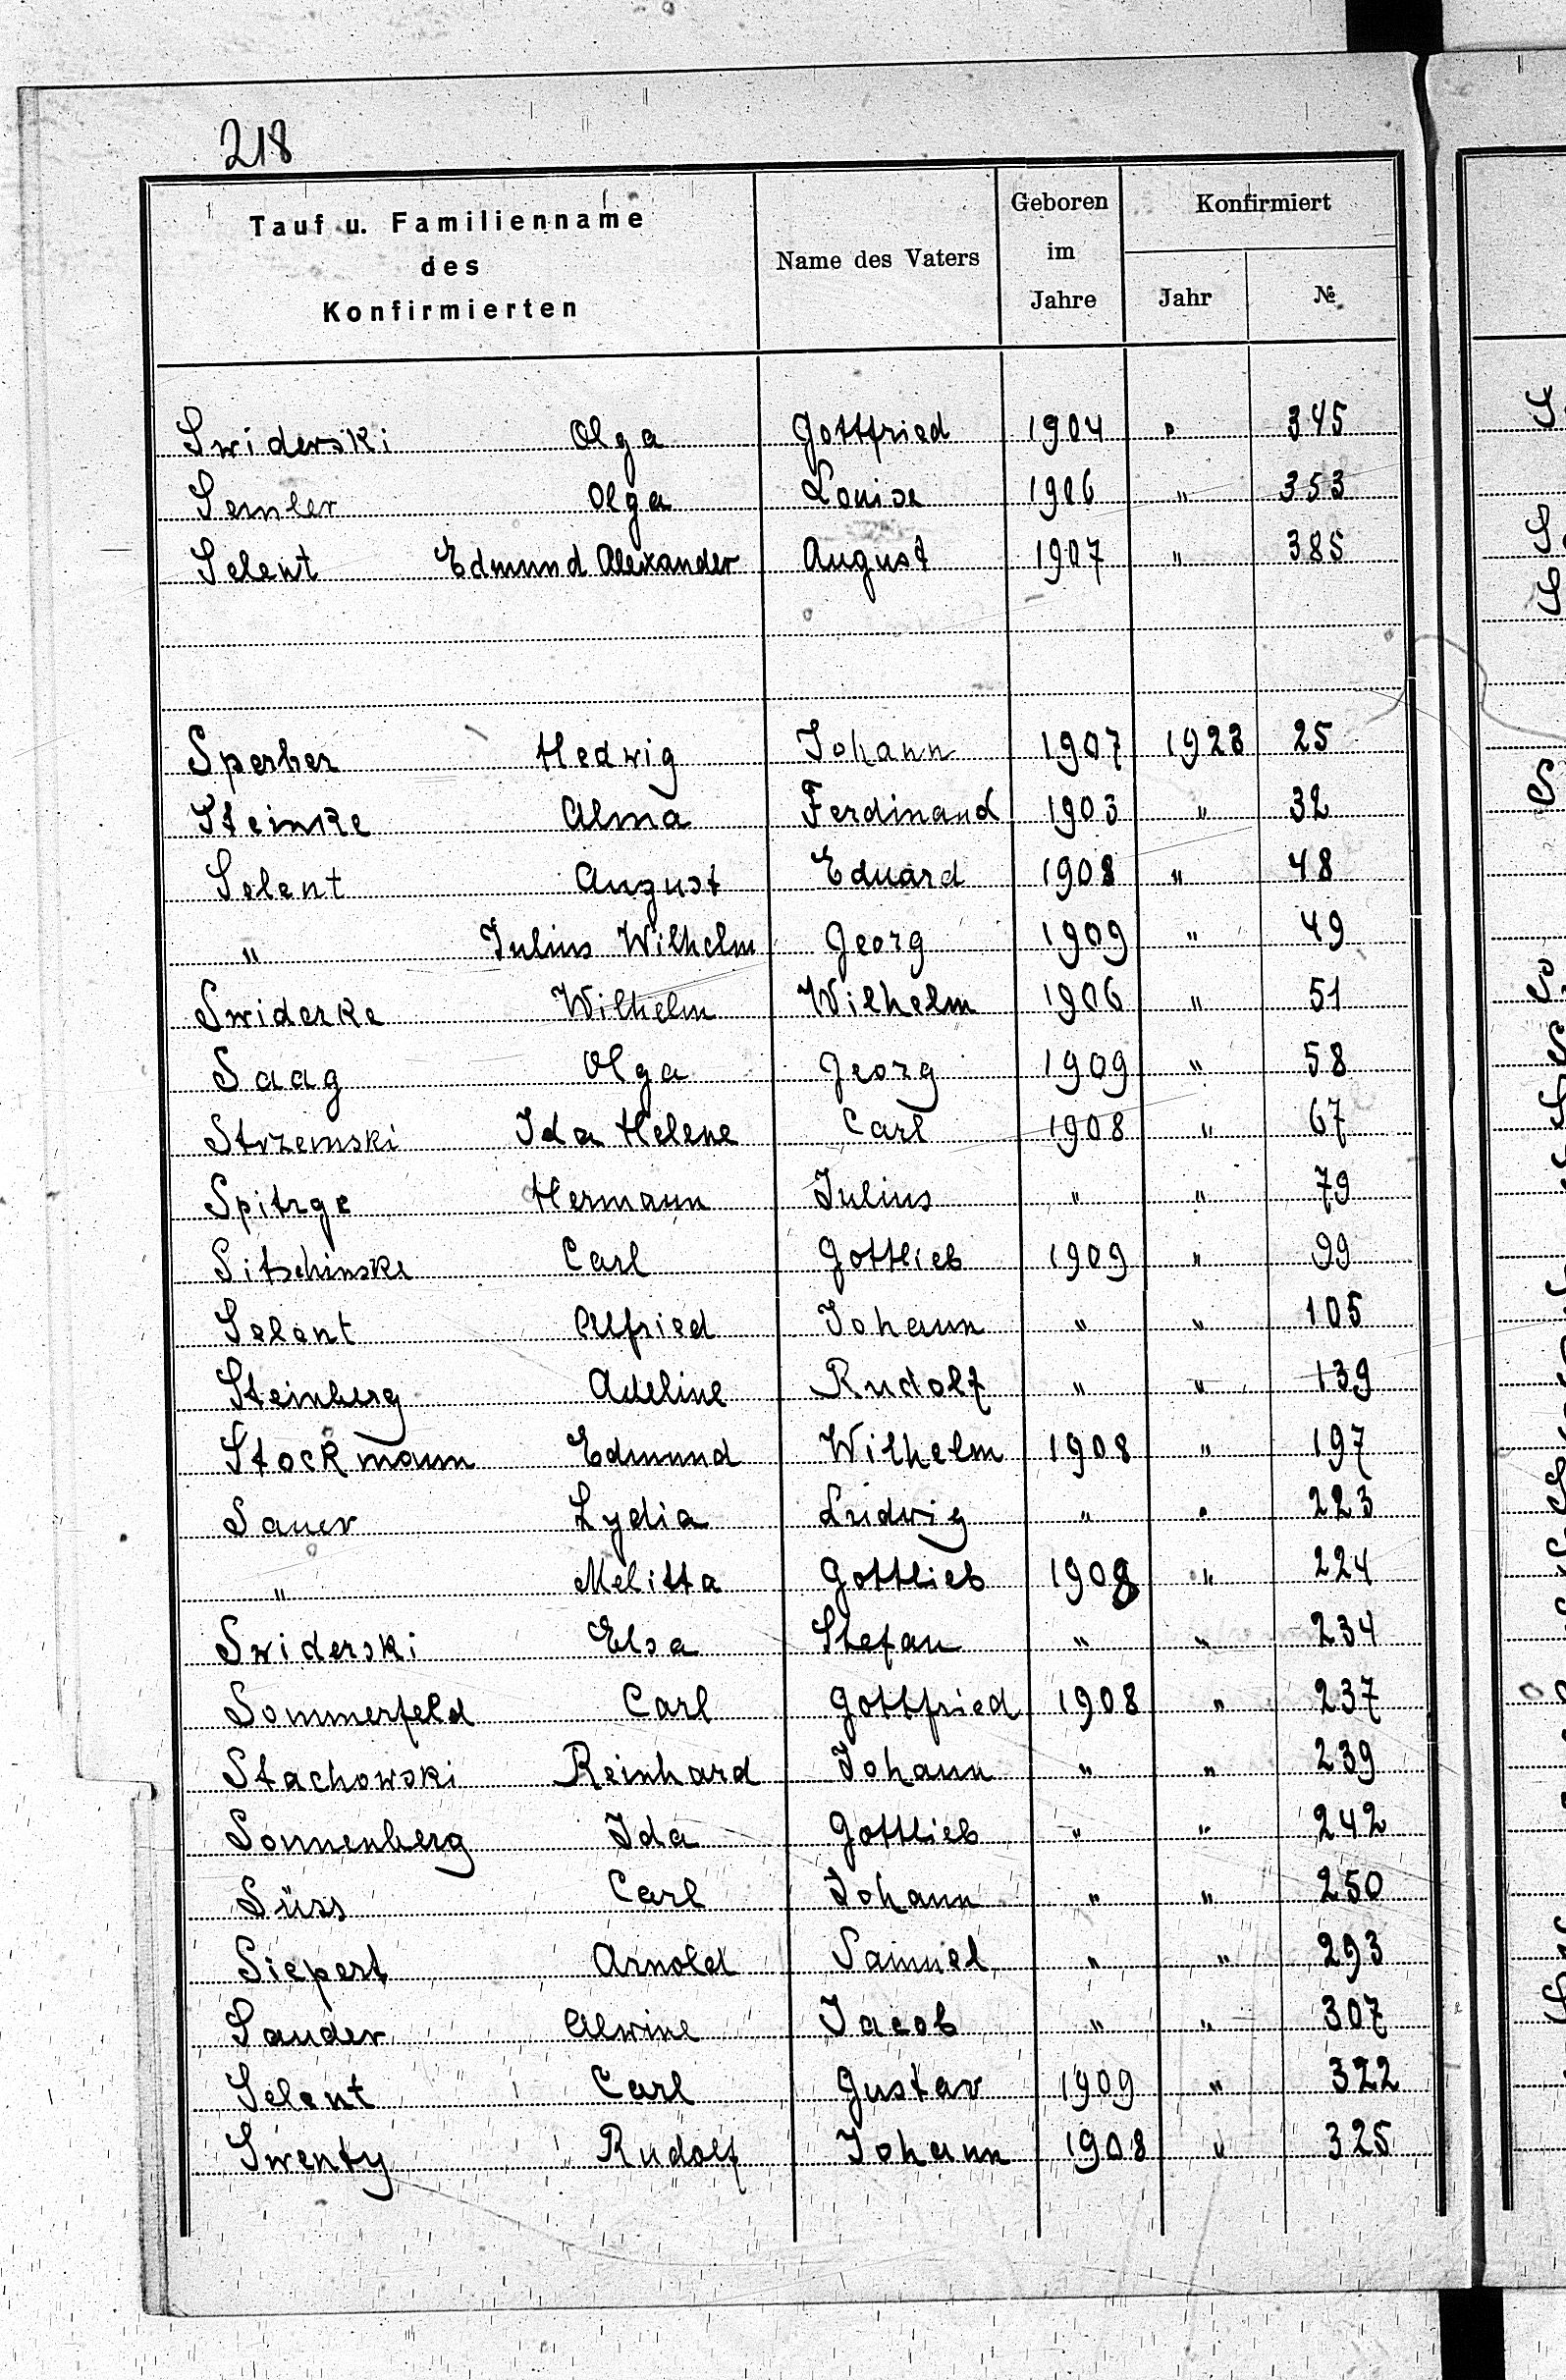 218
Tauf u. Familienname des Konfirmierten | Name des Vaters | Geboren im Jahre | Konfirmiert Jahr | №
Swiderski Olga Gottfried 1904 " 345
Semler Olga Louise 1906 " 353
Selent Edmund Alexander August 1907 " 385
Sperber Hedwig Johann 1907 1923 25
Steinke Alma Ferdinand 1903 " 32
Selent August Eduard 1908 " 48
" Julius Wilhelm Georg 1909 " 49
Swiderke Wilhelm Wilhelm 1906 " 51
Saag Olga Georg 1909 " 58
Strzemski Ida Helene Carl 1908 " 67
Spitzge Hermann Julius " " 79
Sitschinske Carl Gottlieb 1909 " 99
Selent Alfried Johann " " 105
Steinberg Adeline Rudolf " " 139
Stockmann Edmund Wilhelm 1908 " 197
Sauer Lydia Ludwig " " 223
" Melitta Gottlieb 1908 " 224
Swiderski Elsa Stefan " " 234
Sommerfeld Carl Gottfried 1908 " 237
Stachowski Reinhard Johann " " 239
Sonnenberg Ida Gottlieb " " 242
Süss Carl Johann " " 250
Siepert Arnold Samuel " " 293
Sander Alwine Jacob " " 307
Selent Carl Gustav 1909 " 322
Swenty Rudolf Johann 1908 " 325